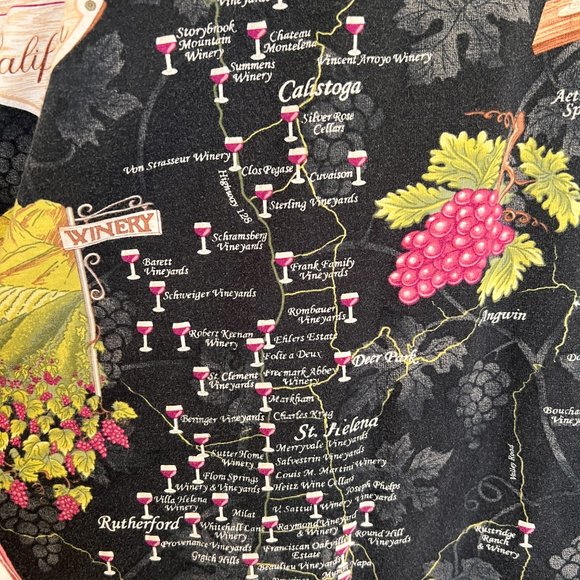 Calif
Storybrook
Mountain
Winery
Chateau
Montelena
Summers
Winery
Vincent Arroyo Winery
Calistoga
Silver Rose
Cellars
Von Strasseur Winery
Clos Pegase
Cuvaison
Highway 128
Sterling Vineyards
WINERY
Schramsberg
Vineyards
Barett
Vineyards
Frank Family
Vineyards
Schweiger Vineyards
Rombauer
Vineyards
Angwin
Robert Keenan
Winery
Ehlers Estate
Folie a Deux
Deer Park
St. Clement
Vineyards
Freemark Abbey
Winery
Markham
Beringer Vineyards
Charles Krug
St. Helena
Merryvale Vineyards
Sutter Home
Winery
Salvestrin Vineyards
Flora Springs
Winery & Vineyards
Louis M. Martini Winery
Heitz Wine Cellars
Joseph Phelps
Vineyards
Villa Helena
Winery
V. Sattui Winery
Milat
Rutherford
Whitehall Lane
Winery
Raymond Vineyard
& Winery
Round Hill
Vineyards
Provenance Vineyards
Franciscan Oakville
Estate
Grgich Hills
Beaulieu Vineyards
Mumm Napa
Valley Road
Rustridge
Ranch
& Winery